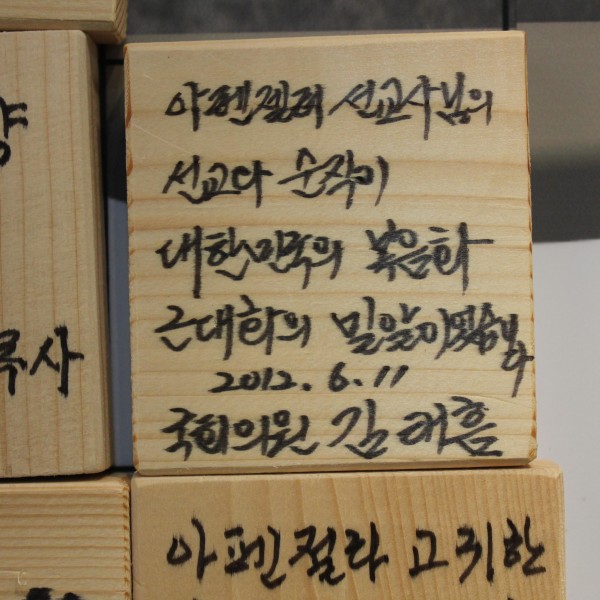 아펜젤러 선교사님의
선교와 순직이
대한민국의 복음화
근대화의 밀알이었습니다
2012. 6. 11
국회의원 김태흠
목사
아펜젤라 고귀한